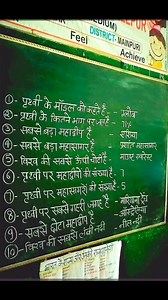 MEDIUM)
DISTRICT- MAINPURI
Feel
Achieve
①- पृथ्वी के मॉडल को कहते हैं - ग्लोब
②- पृथ्वी के कितने भाग पर जल है - 71%
③- सबसे बड़ा महाद्वीप है - एशिया
④- सबसे बड़ा महासागर है - प्रशांत महासागर
⑤- विश्व की सबसे ऊँची चोटी है - माउंट एवरेस्ट
⑥- पृथ्वी पर महाद्वीपों की संख्या है - 7
⑦- पृथ्वी पर महासागरों की संख्या है - 5
⑧- पृथ्वी पर सबसे गहरी जगह है - मारियाना ट्रेंच
⑨- सबसे छोटा महाद्वीप है - ऑस्ट्रेलिया
⑩- विश्व की सबसे लंबी नदी - नील नदी